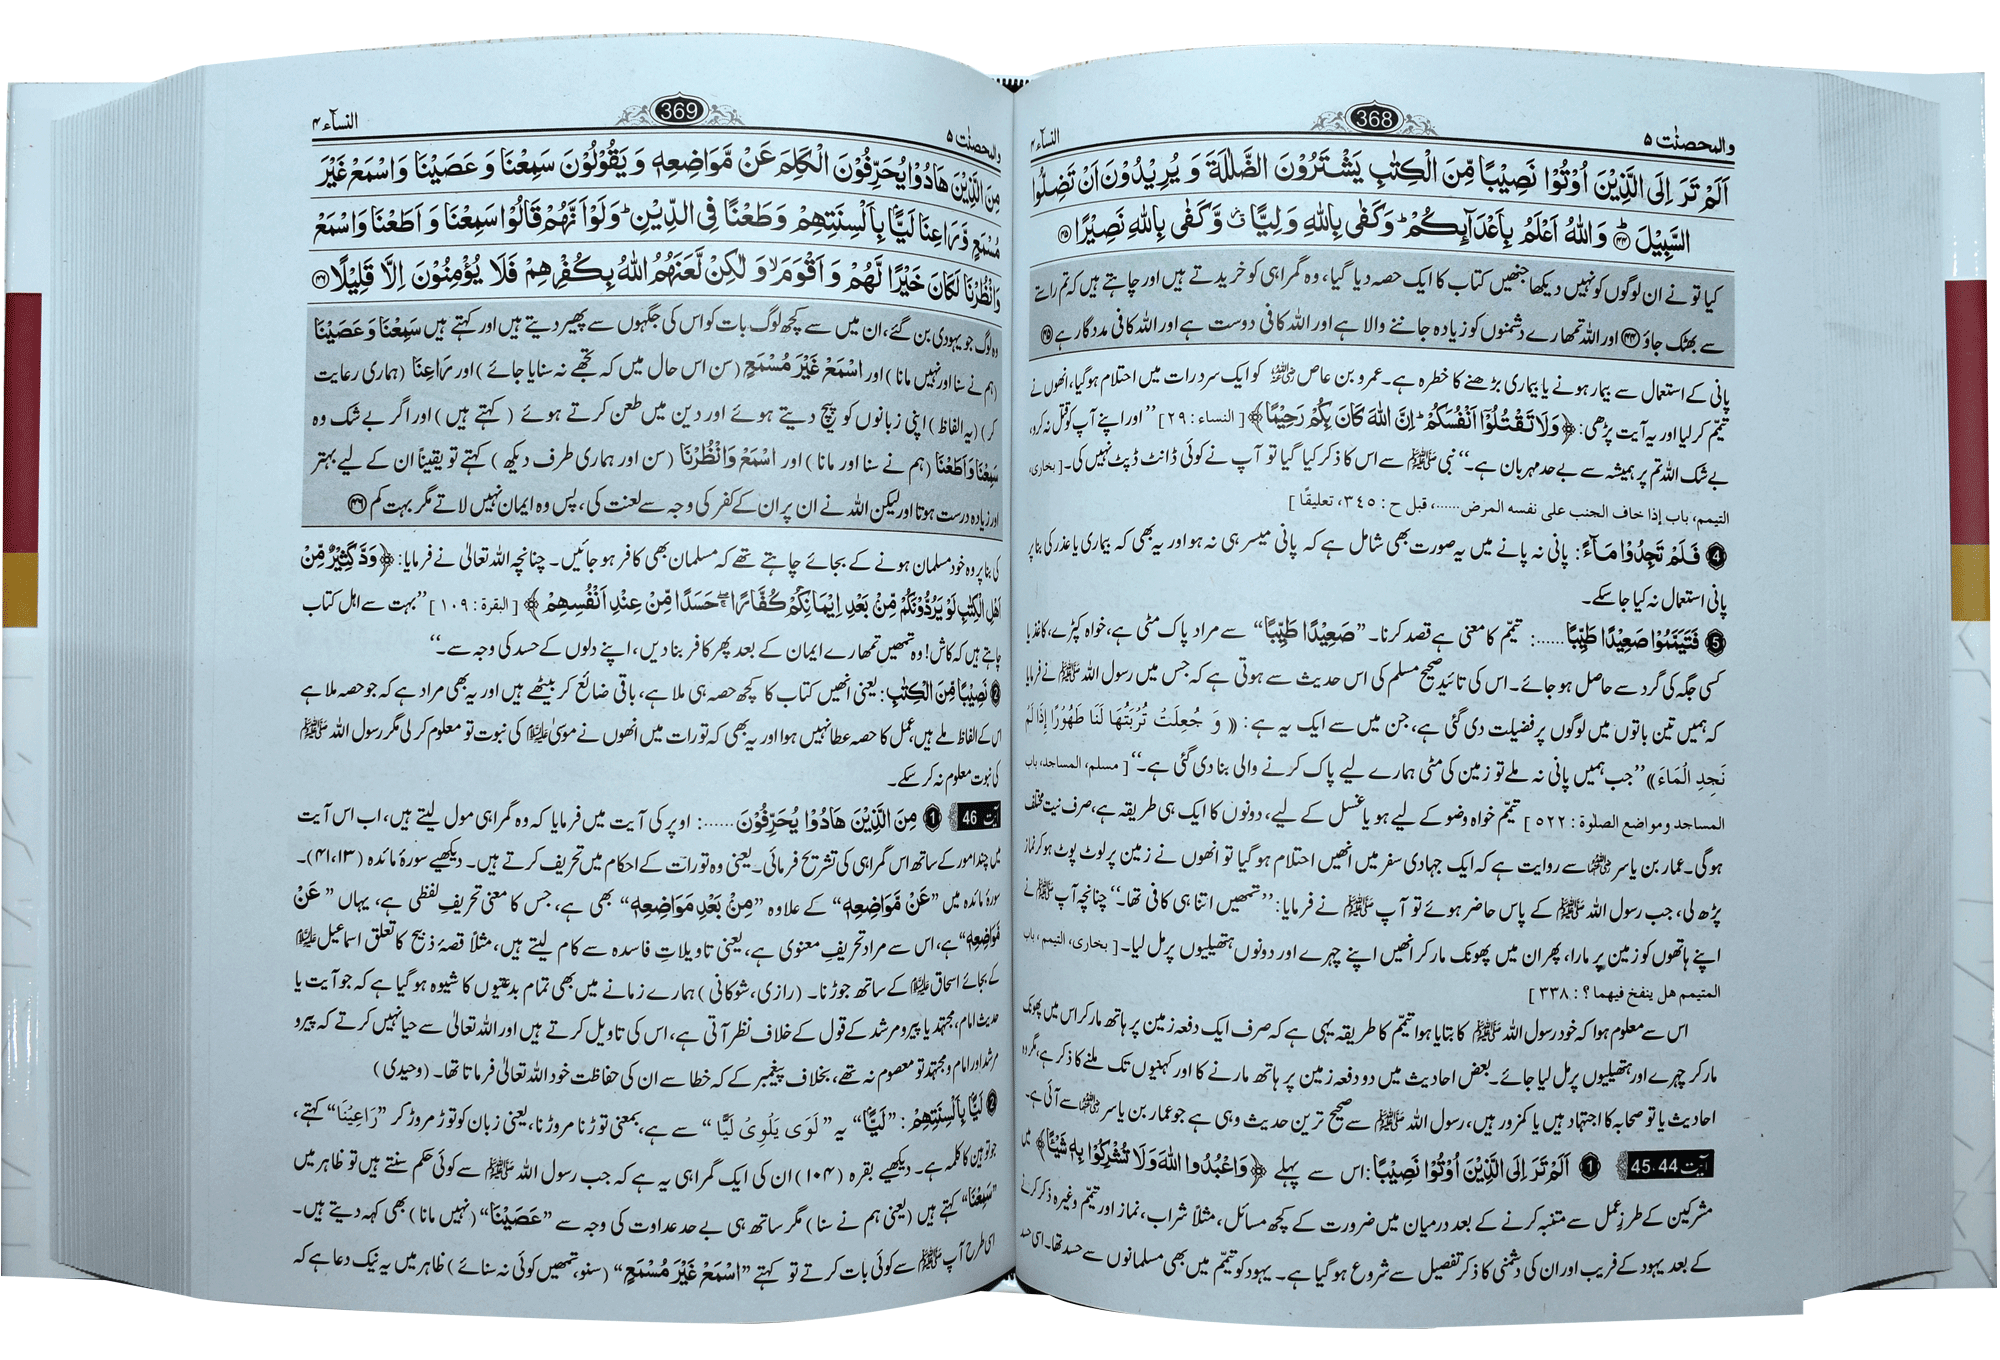 والمحصنٰت ۵
368
النسآء ۴
اَلَمْ تَرَ اِلَى الَّذِيْنَ اُوْتُوْا نَصِيْبًا مِّنَ الْكِتٰبِ يَشْتَرُوْنَ الضَّلٰلَةَ وَ يُرِيْدُوْنَ اَنْ تَضِلُّوا
السَّبِيْلَ ﴿۴۴﴾ وَاللّٰهُ اَعْلَمُ بِاَعْدَآىِٕكُمْ ؕ وَكَفٰى بِاللّٰهِ وَلِيًّا ۙ وَّكَفٰى بِاللّٰهِ نَصِيْرًا ﴿۴۵﴾
کیا تو نے ان لوگوں کو نہیں دیکھا جنھیں کتاب کا ایک حصہ دیا گیا، وہ گمراہی کو خریدتے ہیں اور چاہتے ہیں کہ تم راستے
سے بھٹک جاؤ ﴿۴۴﴾ اور اللہ تمھارے دشمنوں کو زیادہ جاننے والا ہے اور اللہ کافی دوست ہے اور اللہ کافی مددگار ہے ﴿۴۵﴾
پانی کے استعمال سے بیمار ہونے یا بیماری بڑھنے کا خطرہ ہے۔ عمرو بن عاص رضی اللہ عنہ کو ایک سرد رات میں احتلام ہو گیا، انھوں نے
تیمّم کر لیا اور یہ آیت پڑھی: ﴿وَلَا تَقْتُلُوْۤا اَنْفُسَكُمْ ؕ اِنَّ اللّٰهَ كَانَ بِكُمْ رَحِيْمًا﴾ [ النساء : ۲۹ ] ’’اور اپنے آپ کو قتل نہ کرو،
بے شک اللہ تم پر ہمیشہ سے بے حد مہربان ہے۔‘‘ نبی ﷺ سے اس کا ذکر کیا گیا تو آپ نے کوئی ڈانٹ ڈپٹ نہیں کی۔ [ بخاری،
التيمم، باب إذا خاف الجنب على نفسه المرض......، قبل ح : ٣٤٥، تعليقًا ]
4 فَلَمْ تَجِدُوْا مَآءً : پانی نہ پانے میں یہ صورت بھی شامل ہے کہ پانی میسر ہی نہ ہو اور یہ بھی کہ بیماری یا عذر کی بنا پر
پانی استعمال نہ کیا جا سکے۔
5 فَتَيَمَّمُوْا صَعِيْدًا طَيِّبًا ......: تیمّم کا معنی ہے قصد کرنا۔ ”صَعِيْدًا طَيِّبًا“ سے مراد پاک مٹی ہے، خواہ کپڑے، کاغذ یا
کسی جگہ کی گرد سے حاصل ہو جائے۔ اس کی تائید صحیح مسلم کی اس حدیث سے ہوتی ہے کہ جس میں رسول اللہ ﷺ نے فرمایا
کہ ہمیں تین باتوں میں لوگوں پر فضیلت دی گئی ہے، جن میں سے ایک یہ ہے: « وَ جُعِلَتْ تُرْبَتُهَا لَنَا طَهُوْرًا إِذَا لَمْ
نَجِدِ الْمَاءَ » ’’جب ہمیں پانی نہ ملے تو زمین کی مٹی ہمارے لیے پاک کرنے والی بنا دی گئی ہے۔‘‘ [ مسلم، المساجد، باب
المساجد ومواضع الصلوة : ٥٢٢ ] تیمّم خواہ وضو کے لیے ہو یا غسل کے لیے، دونوں کا ایک ہی طریقہ ہے، صرف نیت مختلف
ہو گی۔ عمار بن یاسر رضی اللہ عنہما سے روایت ہے کہ ایک جہادی سفر میں انھیں احتلام ہو گیا تو انھوں نے زمین پر لوٹ پوٹ ہو کر نماز
پڑھ لی، جب رسول اللہ ﷺ کے پاس حاضر ہوئے تو آپ ﷺ نے فرمایا: ’’تمھیں اتنا ہی کافی تھا۔‘‘ چنانچہ آپ ﷺ نے
اپنے ہاتھوں کو زمین پر مارا، پھر ان میں پھونک مار کر انھیں اپنے چہرے اور دونوں ہتھیلیوں پر مل لیا۔ [ بخاری، التيمم، باب
المتيمم هل ينفخ فيهما ؟ : ٣٣٨ ]
اس سے معلوم ہوا کہ خود رسول اللہ ﷺ کا بتایا ہوا تیمّم کا طریقہ یہی ہے کہ صرف ایک دفعہ زمین پر ہاتھ مار کر اس میں پھونک
مار کر چہرے اور ہتھیلیوں پر مل لیا جائے۔ بعض احادیث میں دو دفعہ زمین پر ہاتھ مارنے کا اور کہنیوں تک ملنے کا ذکر ہے، مگر وہ
احادیث یا تو صحابہ کا اجتہاد ہیں یا کمزور ہیں، رسول اللہ ﷺ سے صحیح ترین حدیث وہی ہے جو عمار بن یاسر رضی اللہ عنہما سے آئی ہے۔
آیت 45،44 1 اَلَمْ تَرَ اِلَى الَّذِيْنَ اُوْتُوْا نَصِيْبًا : اس سے پہلے ﴿وَاعْبُدُوا اللّٰهَ وَلَا تُشْرِكُوْا بِهٖ شَيْـًٔا﴾ میں
مشرکین کے طرزِ عمل سے متنبہ کرنے کے بعد درمیان میں ضرورت کے کچھ مسائل، مثلاً شراب، نماز اور تیمّم وغیرہ ذکر کرنے
کے بعد یہود کے فریب اور ان کی دشمنی کا ذکر تفصیل سے شروع ہو گیا ہے۔ یہود کو تیمّم میں بھی مسلمانوں سے حسد تھا۔ اسی حسد
والمحصنٰت ۵
369
النسآء ۴
مِنَ الَّذِيْنَ هَادُوْا يُحَرِّفُوْنَ الْكَلِمَ عَنْ مَّوَاضِعِهٖ وَ يَقُوْلُوْنَ سَمِعْنَا وَ عَصَيْنَا وَ اسْمَعْ غَيْرَ
مُسْمَعٍ وَّ رَاعِنَا لَيًّۢا بِاَلْسِنَتِهِمْ وَ طَعْنًا فِي الدِّيْنِ ؕ وَلَوْ اَنَّهُمْ قَالُوْا سَمِعْنَا وَ اَطَعْنَا وَ اسْمَعْ
وَ انْظُرْنَا لَكَانَ خَيْرًا لَّهُمْ وَ اَقْوَمَ ۙ وَ لٰكِنْ لَّعَنَهُمُ اللّٰهُ بِكُفْرِهِمْ فَلَا يُؤْمِنُوْنَ اِلَّا قَلِيْلًا ﴿۴۶﴾
وہ لوگ جو یہودی بن گئے، ان میں سے کچھ لوگ بات کو اس کی جگہوں سے پھیر دیتے ہیں اور کہتے ہیں سَمِعْنَا وَ عَصَيْنَا
(ہم نے سنا اور نہیں مانا) اور اسْمَعْ غَيْرَ مُسْمَعٍ (سن اس حال میں کہ تجھے نہ سنایا جائے) اور رَاعِنَا (ہماری رعایت
کر) (یہ الفاظ) اپنی زبانوں کو پیچ دیتے ہوئے اور دین میں طعن کرتے ہوئے (کہتے ہیں) اور اگر بے شک وہ
سَمِعْنَا وَ اَطَعْنَا (ہم نے سنا اور مانا) اور اسْمَعْ وَ انْظُرْنَا (سن اور ہماری طرف دیکھ) کہتے تو یقیناً ان کے لیے بہتر
اور زیادہ درست ہوتا اور لیکن اللہ نے ان پر ان کے کفر کی وجہ سے لعنت کی، پس وہ ایمان نہیں لاتے مگر بہت کم ﴿۴۶﴾
کی بنا پر وہ خود مسلمان ہونے کے بجائے چاہتے تھے کہ مسلمان بھی کافر ہو جائیں۔ چنانچہ اللہ تعالیٰ نے فرمایا: ﴿وَدَّ كَثِيْرٌ مِّنْ
اَهْلِ الْكِتٰبِ لَوْ يَرُدُّوْنَكُمْ مِّنْۢ بَعْدِ اِيْمَانِكُمْ كُفَّارًا ۖۚ حَسَدًا مِّنْ عِنْدِ اَنْفُسِهِمْ﴾ [ البقرة : ۱۰۹ ] ’’بہت سے اہل کتاب
چاہتے ہیں کہ کاش! وہ تمھیں تمھارے ایمان کے بعد پھر کافر بنا دیں، اپنے دلوں کے حسد کی وجہ سے۔‘‘
2 نَصِيْبًا مِّنَ الْكِتٰبِ : یعنی انھیں کتاب کا کچھ حصہ ہی ملا ہے، باقی ضائع کر بیٹھے ہیں اور یہ بھی مراد ہے کہ جو حصہ ملا ہے
اس کے الفاظ ملے ہیں، عمل کا حصہ عطا نہیں ہوا اور یہ بھی کہ تورات میں انھوں نے موسیٰ علیہ السلام کی نبوت تو معلوم کر لی مگر رسول اللہ ﷺ
کی نبوت معلوم نہ کر سکے۔
آیت 46 1 مِنَ الَّذِيْنَ هَادُوْا يُحَرِّفُوْنَ ......: اوپر کی آیت میں فرمایا کہ وہ گمراہی مول لیتے ہیں، اب اس آیت
میں چند امور کے ساتھ اس گمراہی کی تشریح فرمائی۔ یعنی وہ تورات کے احکام میں تحریف کرتے ہیں۔ دیکھیے سورۂ مائدہ (۱۳، ۴۱)۔
سورۂ مائدہ میں ”عَنْ مَّوَاضِعِهٖ“ کے علاوہ ”مِنْۢ بَعْدِ مَوَاضِعِهٖ“ بھی ہے، جس کا معنی تحریفِ لفظی ہے، یہاں ”عَنْ
مَّوَاضِعِهٖ“ ہے، اس سے مراد تحریفِ معنوی ہے، یعنی تاویلاتِ فاسدہ سے کام لیتے ہیں، مثلاً قصۂ ذبیح کا تعلق اسماعیل علیہ السلام
کے بجائے اسحاق علیہ السلام کے ساتھ جوڑنا۔ (رازی، شوکانی) ہمارے زمانے میں بھی تمام بدعتیوں کا شیوہ ہو گیا ہے کہ جو آیت یا
حدیث امام، مجتہد یا پیر و مرشد کے قول کے خلاف نظر آتی ہے، اس کی تاویل کرتے ہیں اور اللہ تعالیٰ سے حیا نہیں کرتے کہ پیر و
مرشد اور امام و مجتہد تو معصوم نہ تھے، بخلاف پیغمبر کے کہ خطا سے ان کی حفاظت خود اللہ تعالیٰ فرماتا تھا۔ (وحیدی)
2 لَيًّۢا بِاَلْسِنَتِهِمْ : ”لَيًّا“ یہ ”لَوٰى يَلْوِيْ لَيًّا“ سے ہے، بمعنی توڑنا مروڑنا، یعنی زبان کو توڑ مروڑ کر ”رَاعِيْنَا“ کہتے،
جو توہین کا کلمہ ہے۔ دیکھیے بقرہ (۱۰۴) ان کی ایک گمراہی یہ ہے کہ جب رسول اللہ ﷺ سے کوئی حکم سنتے ہیں تو ظاہر میں
”سَمِعْنَا“ کہتے ہیں (یعنی ہم نے سنا) مگر ساتھ ہی بے حد عداوت کی وجہ سے ”عَصَيْنَا“ (نہیں مانا) بھی کہہ دیتے ہیں۔
اسی طرح آپ ﷺ سے کوئی بات کرتے تو کہتے ”اسْمَعْ غَيْرَ مُسْمَعٍ“ (سنو، تمھیں کوئی نہ سنائے) ظاہر میں یہ نیک دعا ہے کہ